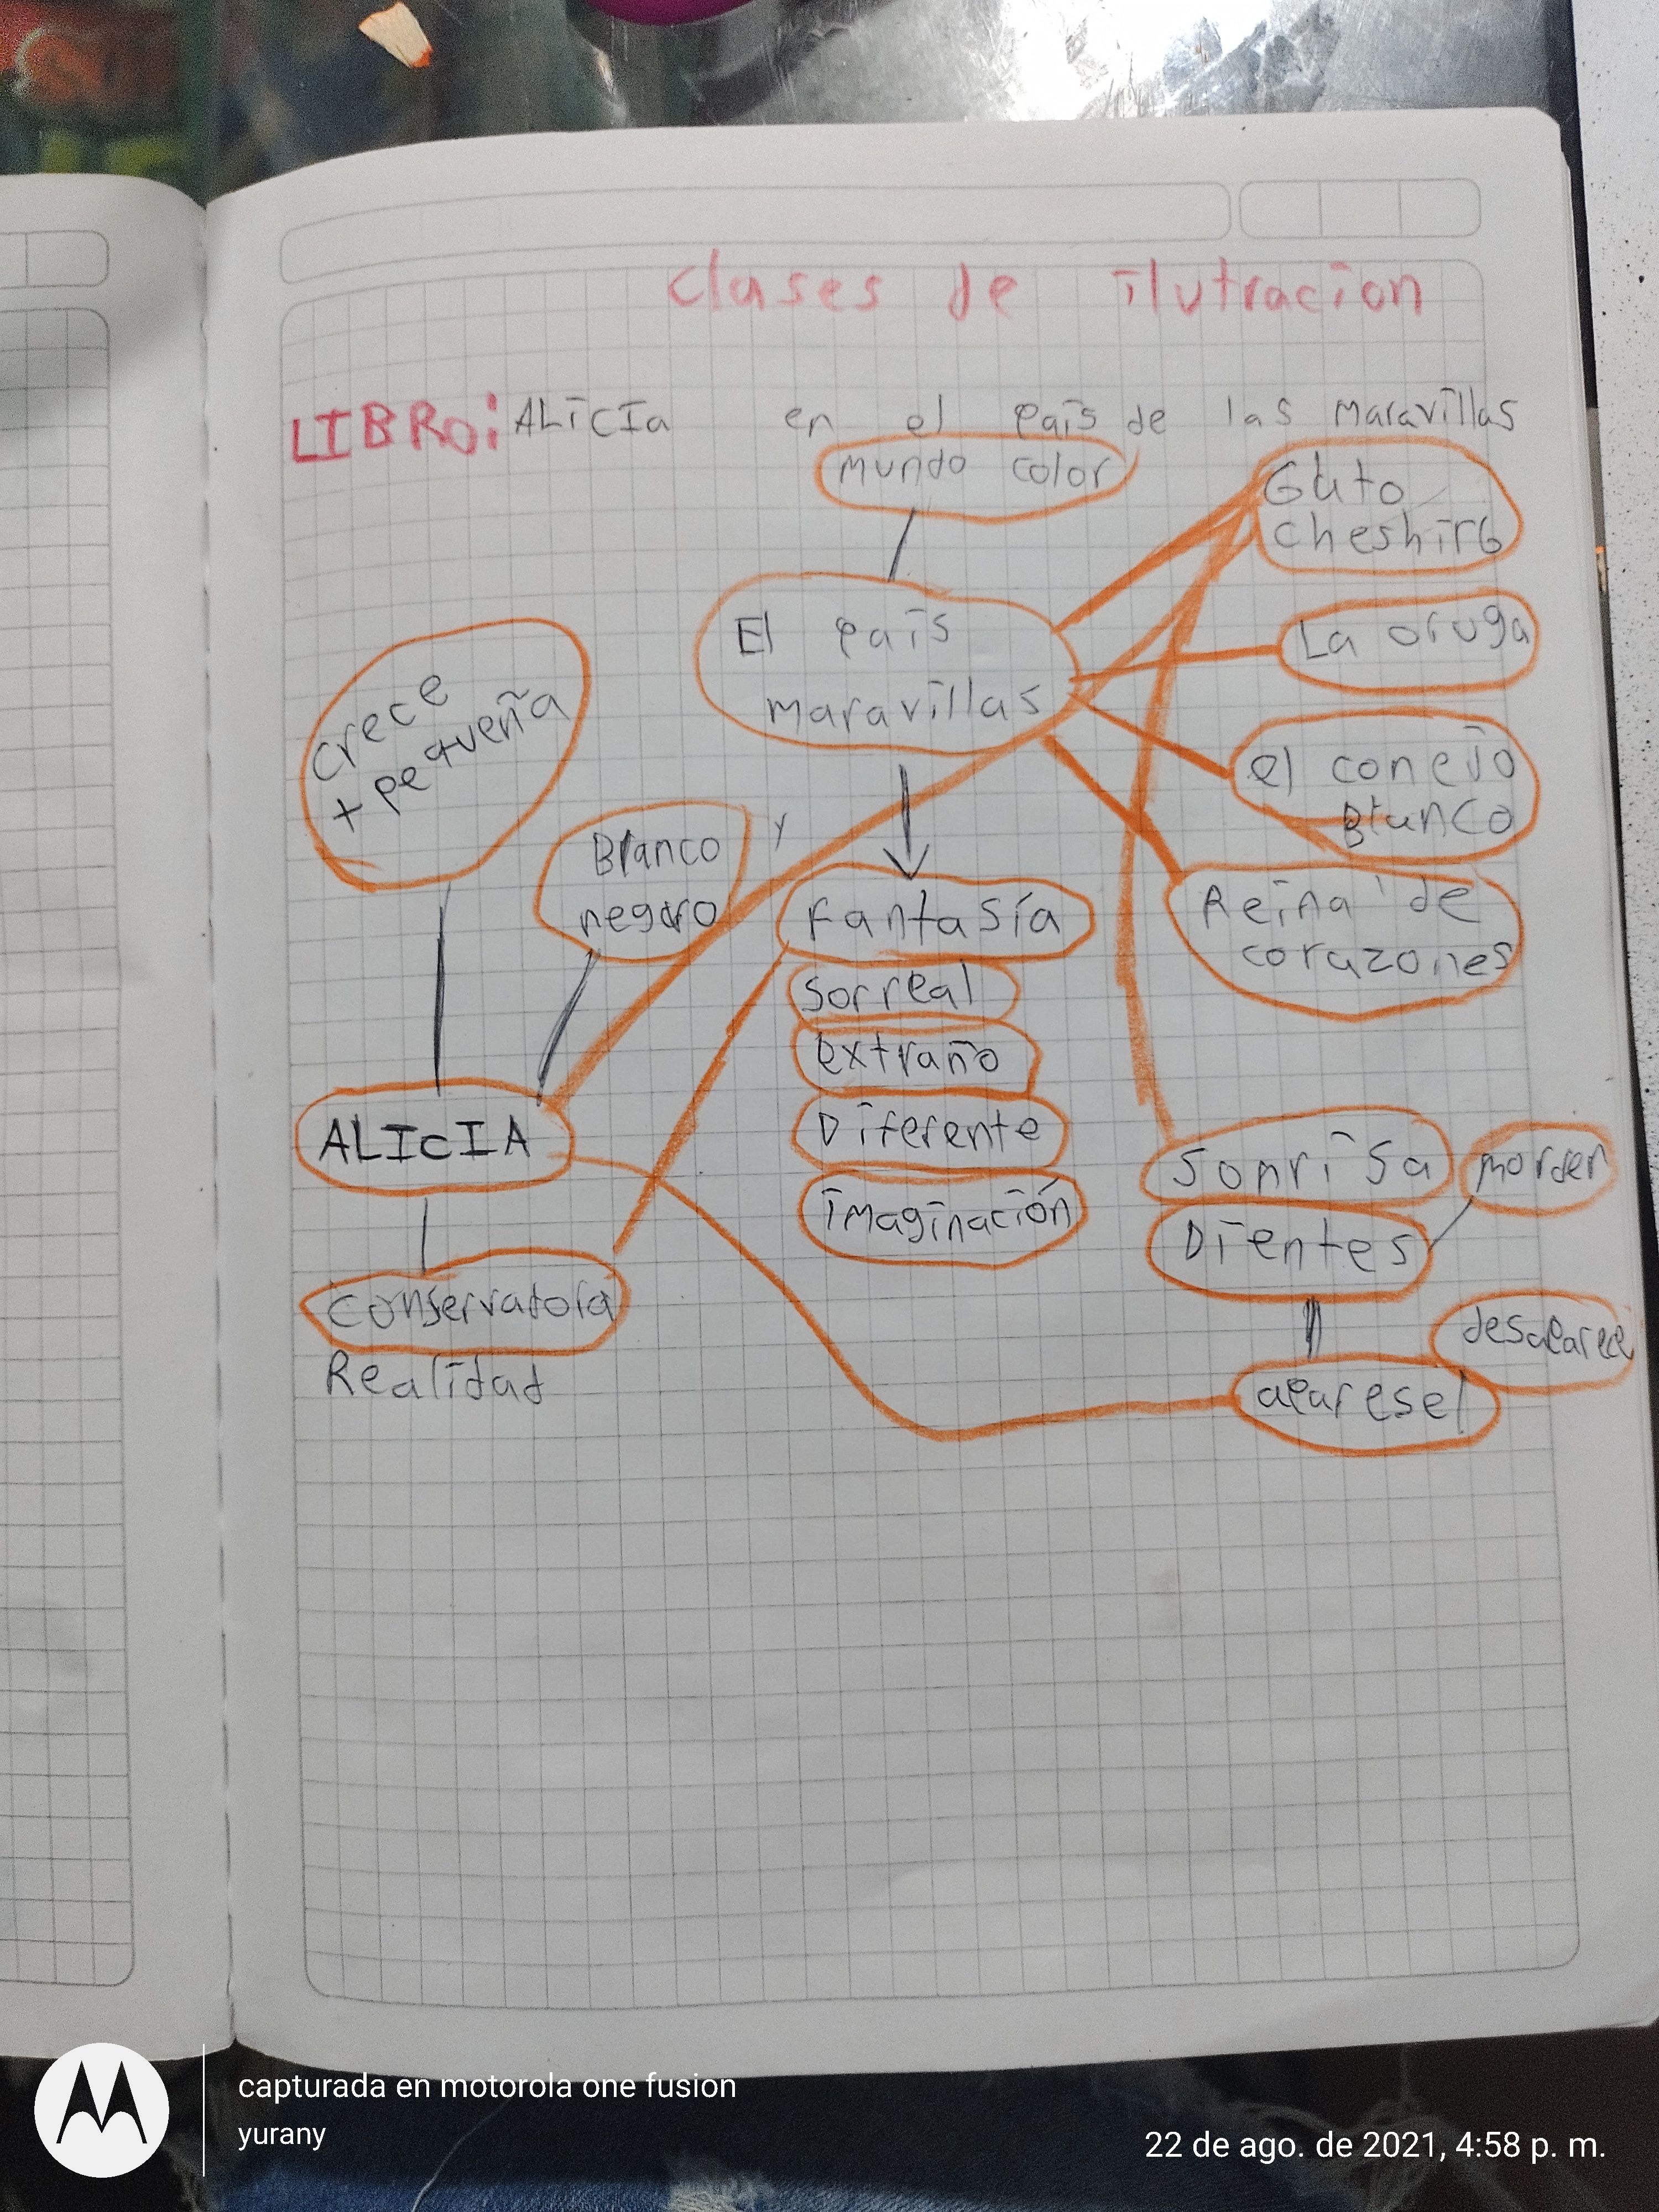 clases de ilutracion
LIBRO: ALICIa en el país de las maravillas
mundo color
Gato
cheshire
El país
maravillas
La oruga
crece
+ pequeña
el conejo
Blanco
Blanco y
negro
Fantasía
Reina de
corazones
sorreal
extraño
Diferente
imaginación
ALICIA
sonrisa
morder
Dientes
conservatora
Realidad
desaparece
aparese
capturada en motorola one fusion
yurany
22 de ago. de 2021, 4:58 p. m.